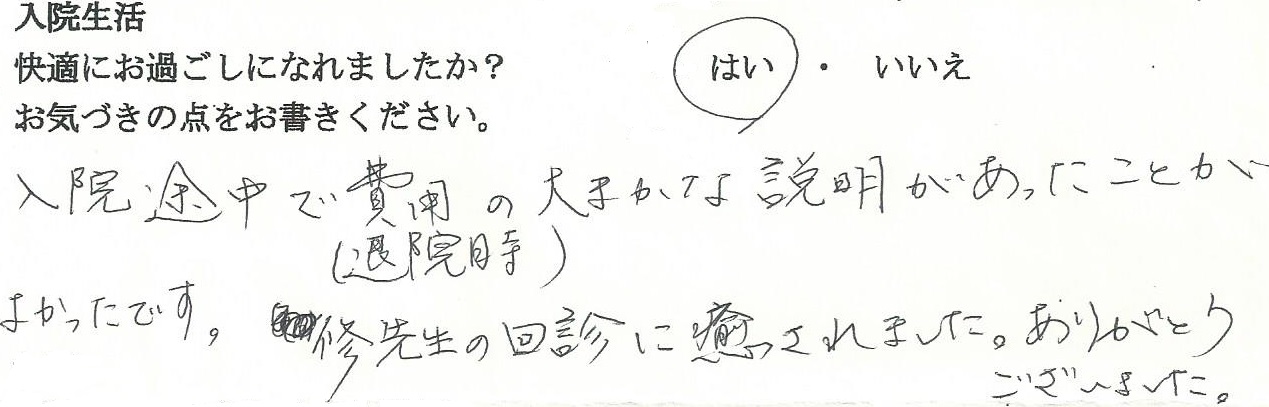 入院生活
快適にお過ごしになれましたか？ はい ・ いいえ
お気づきの点をお書きください。
入院途中で費用の大まかな説明があったことが
(退院時)
よかったです。 修先生の回診に癒されました。ありがとう
ございました。